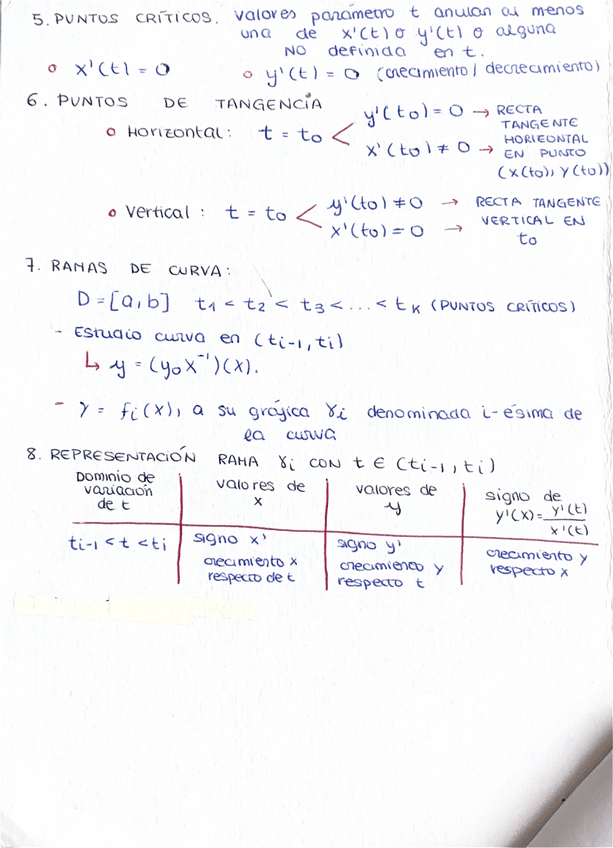 5. PUNTOS CRÍTICOS. valores parámetro t anulan al menos
una de x'(t) o y'(t) o alguna
NO definida en t.
o x'(t) = 0 o y'(t) = 0 (crecimiento / decrecimiento)
6. PUNTOS DE TANGENCIA
o Horizontal: t = to < y'(to) = 0 → RECTA
TANGENTE
x'(to) ≠ 0 → HORIZONTAL
EN PUNTO
(x(to), y(to))
o Vertical: t = to < y'(to) ≠ 0 → RECTA TANGENTE
x'(to) = 0 → VERTICAL EN
to
7. RAMAS DE CURVA:
D = [a, b] t1 < t2 < t3 < ... < tk (PUNTOS CRÍTICOS)
- Estudio curva en (ti-1, ti)
↳ y = (y o x⁻¹)(x).
- y = fi(x), a su gráfica γi denominada i-ésima de
la curva
8. REPRESENTACIÓN RAMA γi CON t ∈ (ti-1, ti)
Dominio de
variación
de t
valores de
x
valores de
y
signo de
y'(x) = y'(t)
x'(t)
ti-1 < t < ti
signo x'
crecimiento x
respecto de t
signo y'
crecimiento y
respecto t
crecimiento y
respecto x